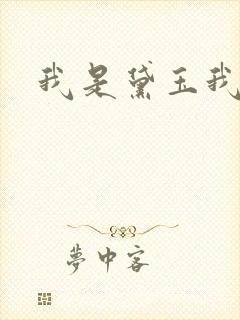 我是黛玉我
夢中客